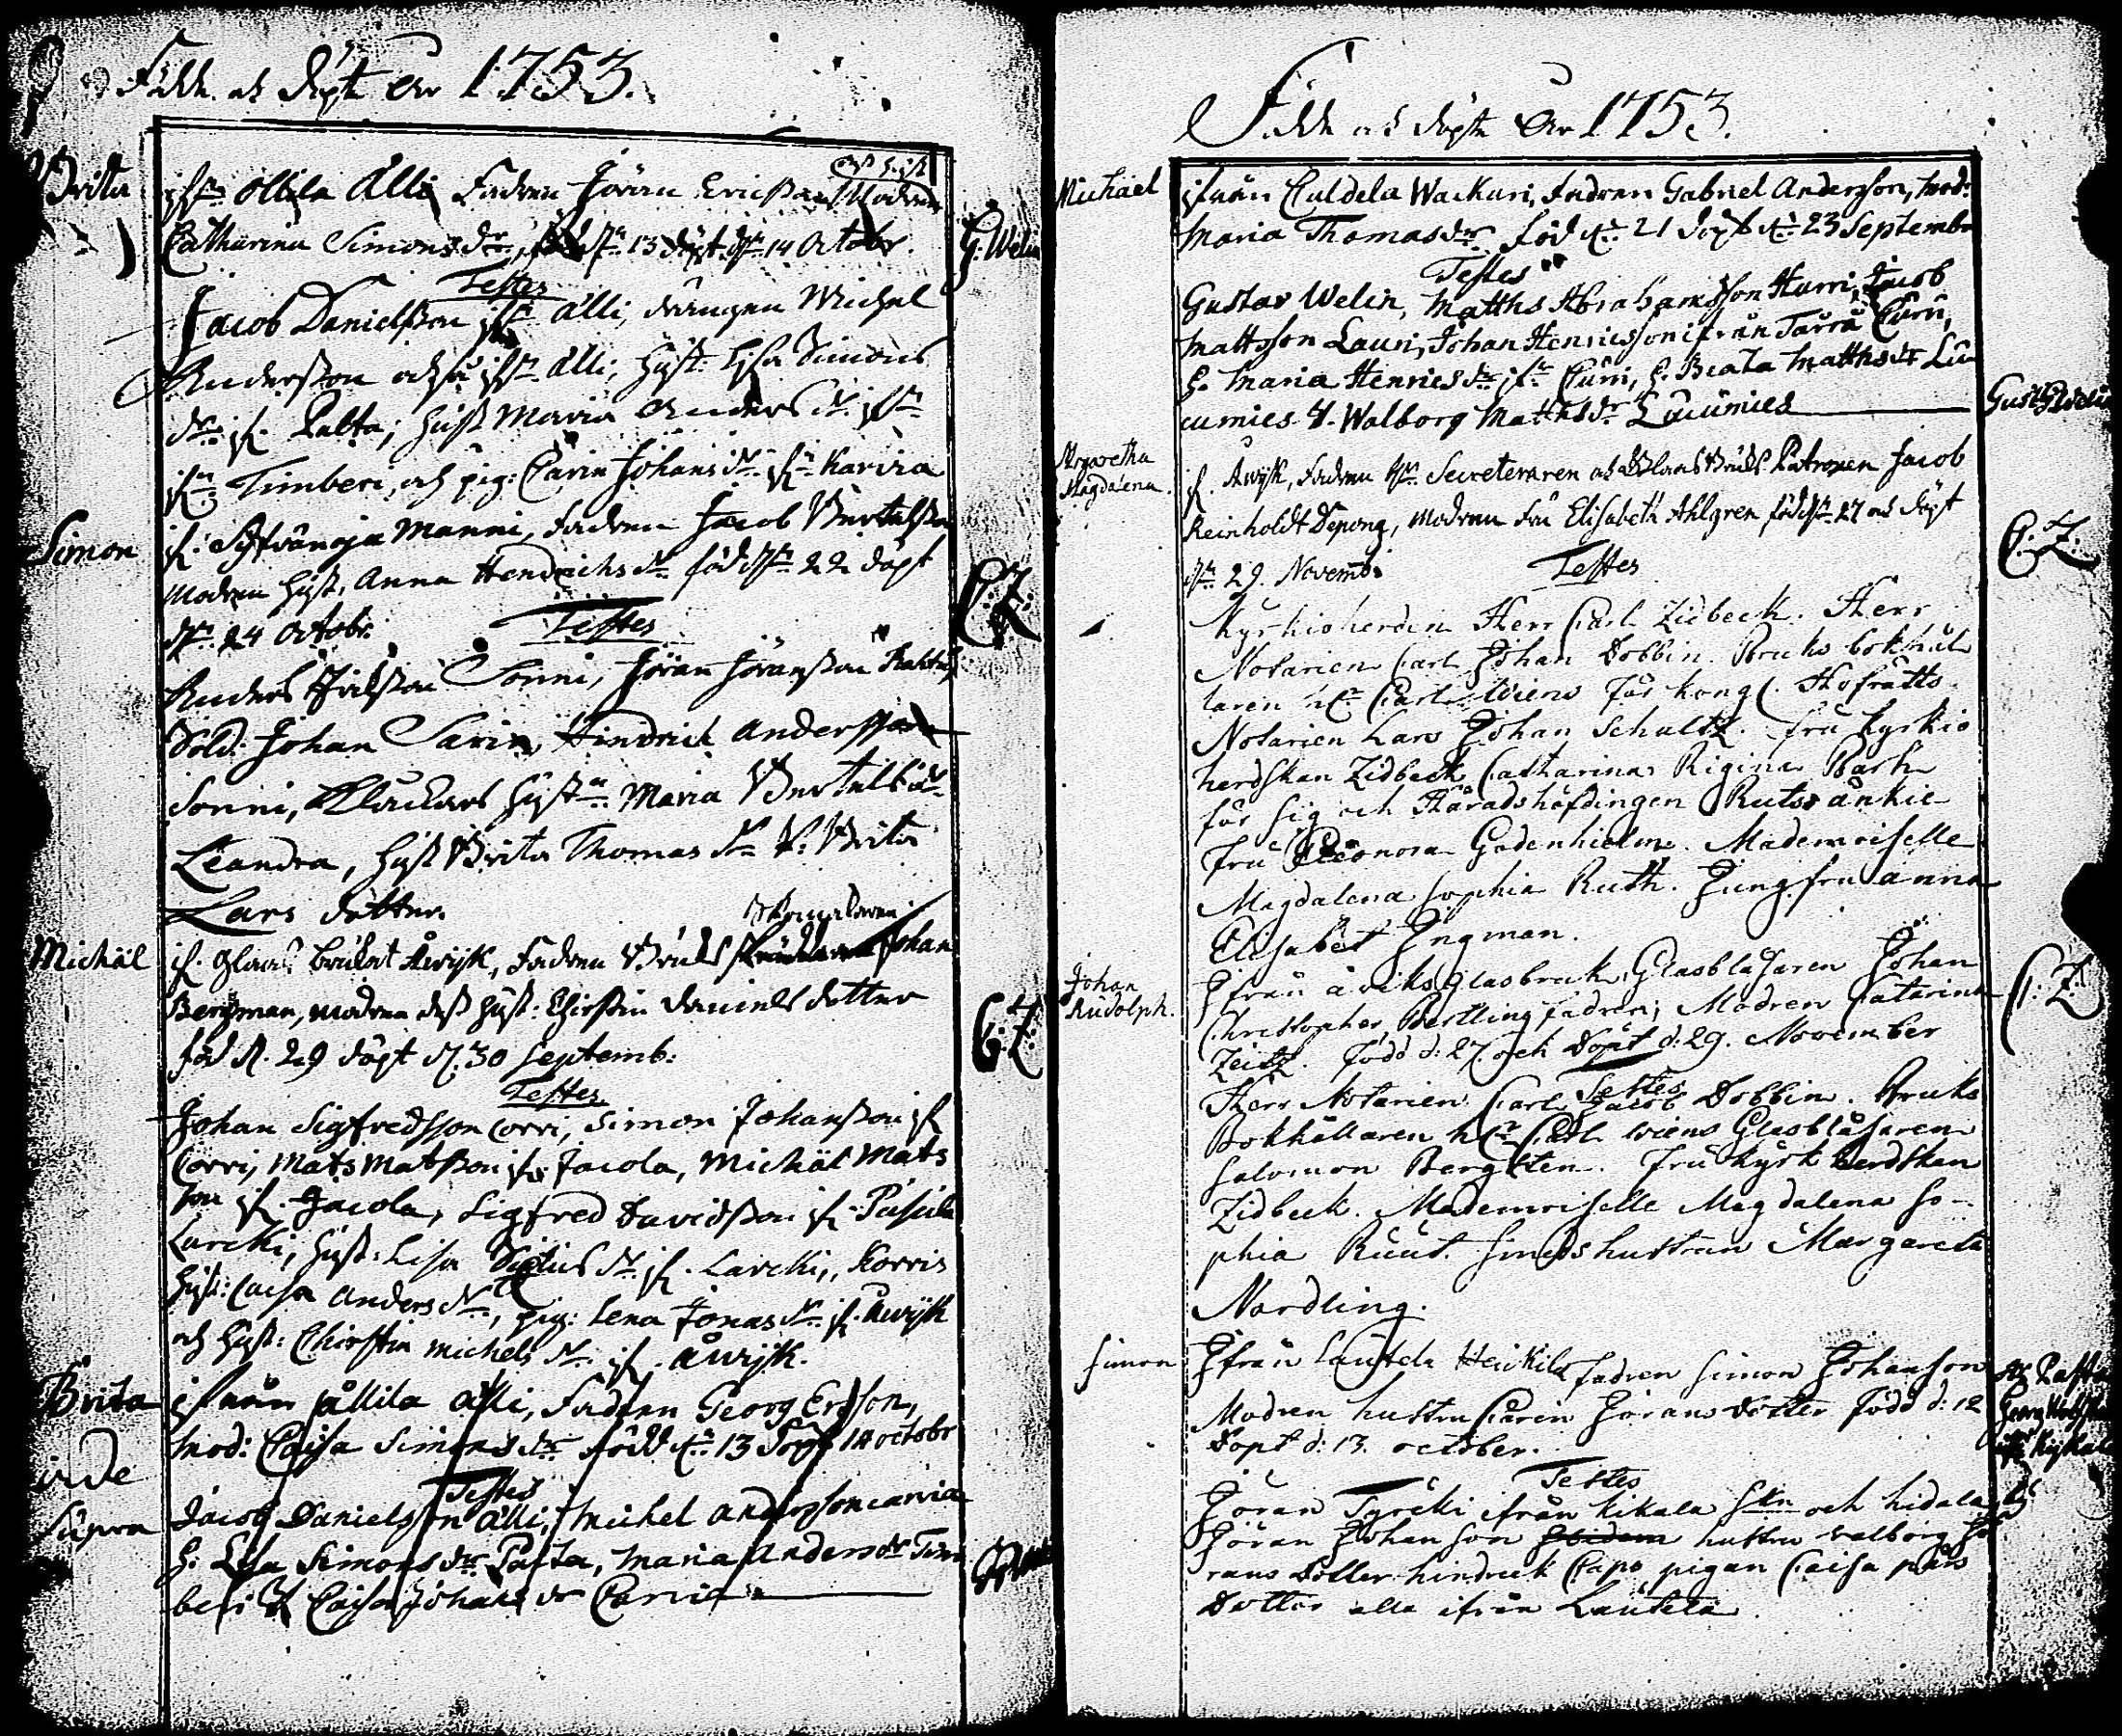 Födde och döpte Åhr 1753.
Brita
ifrån Ollila Älli Fadren Jöran Ericsson Modren
Catharina Simonsdr, född dn 13 döpt dn 14 Octobr.
G. Welin
Testes
Jacob Danielsson ifrn Älli, drängen Michel
Andersson också ifrn Älli, Hust. Lisa Simons
dr if. Palta; Hust Maria Anders dr ifrn
Timberi, och pig: Carin Johans dr ifrn Karvia
Simon
if. Manni, Fadren Jacob Bertelsson
Modren Hust. Anna Hendrichsdr född dn 22 döpt
dn 24 Octobr.
C: Z:
Testes
Anders Sonni, Jöran Jöransson
Sold: Johan Sarin, Hindrick Andersson
Sonni, Hustn Maria Bertelsdr
Leandra, Hust Brita Thomasdr P: Brita
Lars dotter.
Michäl
if. Glas bruket Åwijk, Fadren Bruks Johan
Bergman, modren dess Hust: Chirstin Daniels dotter
född d. 29 döpt d. 30 Septemb:
C: Z:
Testes
Johan Sigfredsson Corri, Simon Johansson if
Corri, Mats Matsson if. Jacola, Michäl Mats
son if. Jacola, Sigfred Davidsson if.
Larcki, Hust: Lisa dr if. Larcki, Korris
Hust: Caisa Anders dr, pig: Lena Jonas dr if. Åwijk
och Hust: Chirstin Michels dr if. Åwijk.
Brita
ifrån Ållila Älli, Fadren Georg Ersson,
Mod: Caisa Simonsdr född dn 13 döpt 14 octobr
vide
supra
Testes
Jacob Danielsson Älli, Michel Andersson Carvia
H: Lisa Simons dr Palta, Maria Anders dr Tim
beri P Caisa Johans dr Carvia
Födde och döpte Åhr 1753.
Michael
ifrån Culdela Wackuri, Fadren Gabriel Andersson, Mod:
Maria Thomasdr född dn 21 döpt dn 23 Septembr
Testes
Gustav Welin, Matths Abrahamsson Hurri, Jacob
Mattsson Lauri, Johan Henricsson ifrån Tarra Curri,
H. Maria Henricsdr ifn Curri, H. Beata Matthsdr Lu
cumies P. Walborg Matthsdr Lucumies
Gust Welin
Margaretha
Magdalena.
if. Awijk, Fadren Hr Secreteraren och Glasbruks Patronen Jacob
Reinholdt Depong, Modren Fru Elisabeth Ahlgren född dn 27 och döpt
dn 29. Novemb:
C: Z:
Testes
Kyrkioherden Herr Carl Zidbeck. Herr
Notarien Carl Johan Dobbin. Bruks bokhål
laren hr Carl Wiens för kongl. Hofrätts
Notarien Lars Johan Schultz. fru kyrkio
herdskan Zidbeck Catharina Rigina Barck
för sig och Häradshöfdingen Ruts änkie
fru Eleonora Gadenhielm. Mademoiselle
Magdalena Sophia Ruth. Jungfru anna
Elisabet Ingman.
Johan
Rudolph.
Ifrån åviks Glasbruk Glasblåsaren Johan
Christopher Bertling fadren; Modren Catarina
Zeitz. född d: 27 och döpt d: 29. November
C: Z:
Testes
Herr Notarien Carl Jacob Dobbin. Bruks
Bokhållaren hr Carl Wiens Glasblåsaren
Salomon Bergsten. fru kyrk herdskan
Zidbeck. Mademoiselle Magdalena So-
phia Ruut. Smeds hustrun Margareta
Nordling.
Simon
Ifrån Lautela Heickilä fadren Simon Johanson
Modren hustru Carin Jörans dotter född d: 12
Döpt d: 13. october.
Testes
Jöran Tyrcki ifrån kikala Skn och hidala
Jöran Johanson hustru valborg Jö
rans Dotter hindrick Capo pigan Caisa pärs
Dotter alla ifrån Lautela.